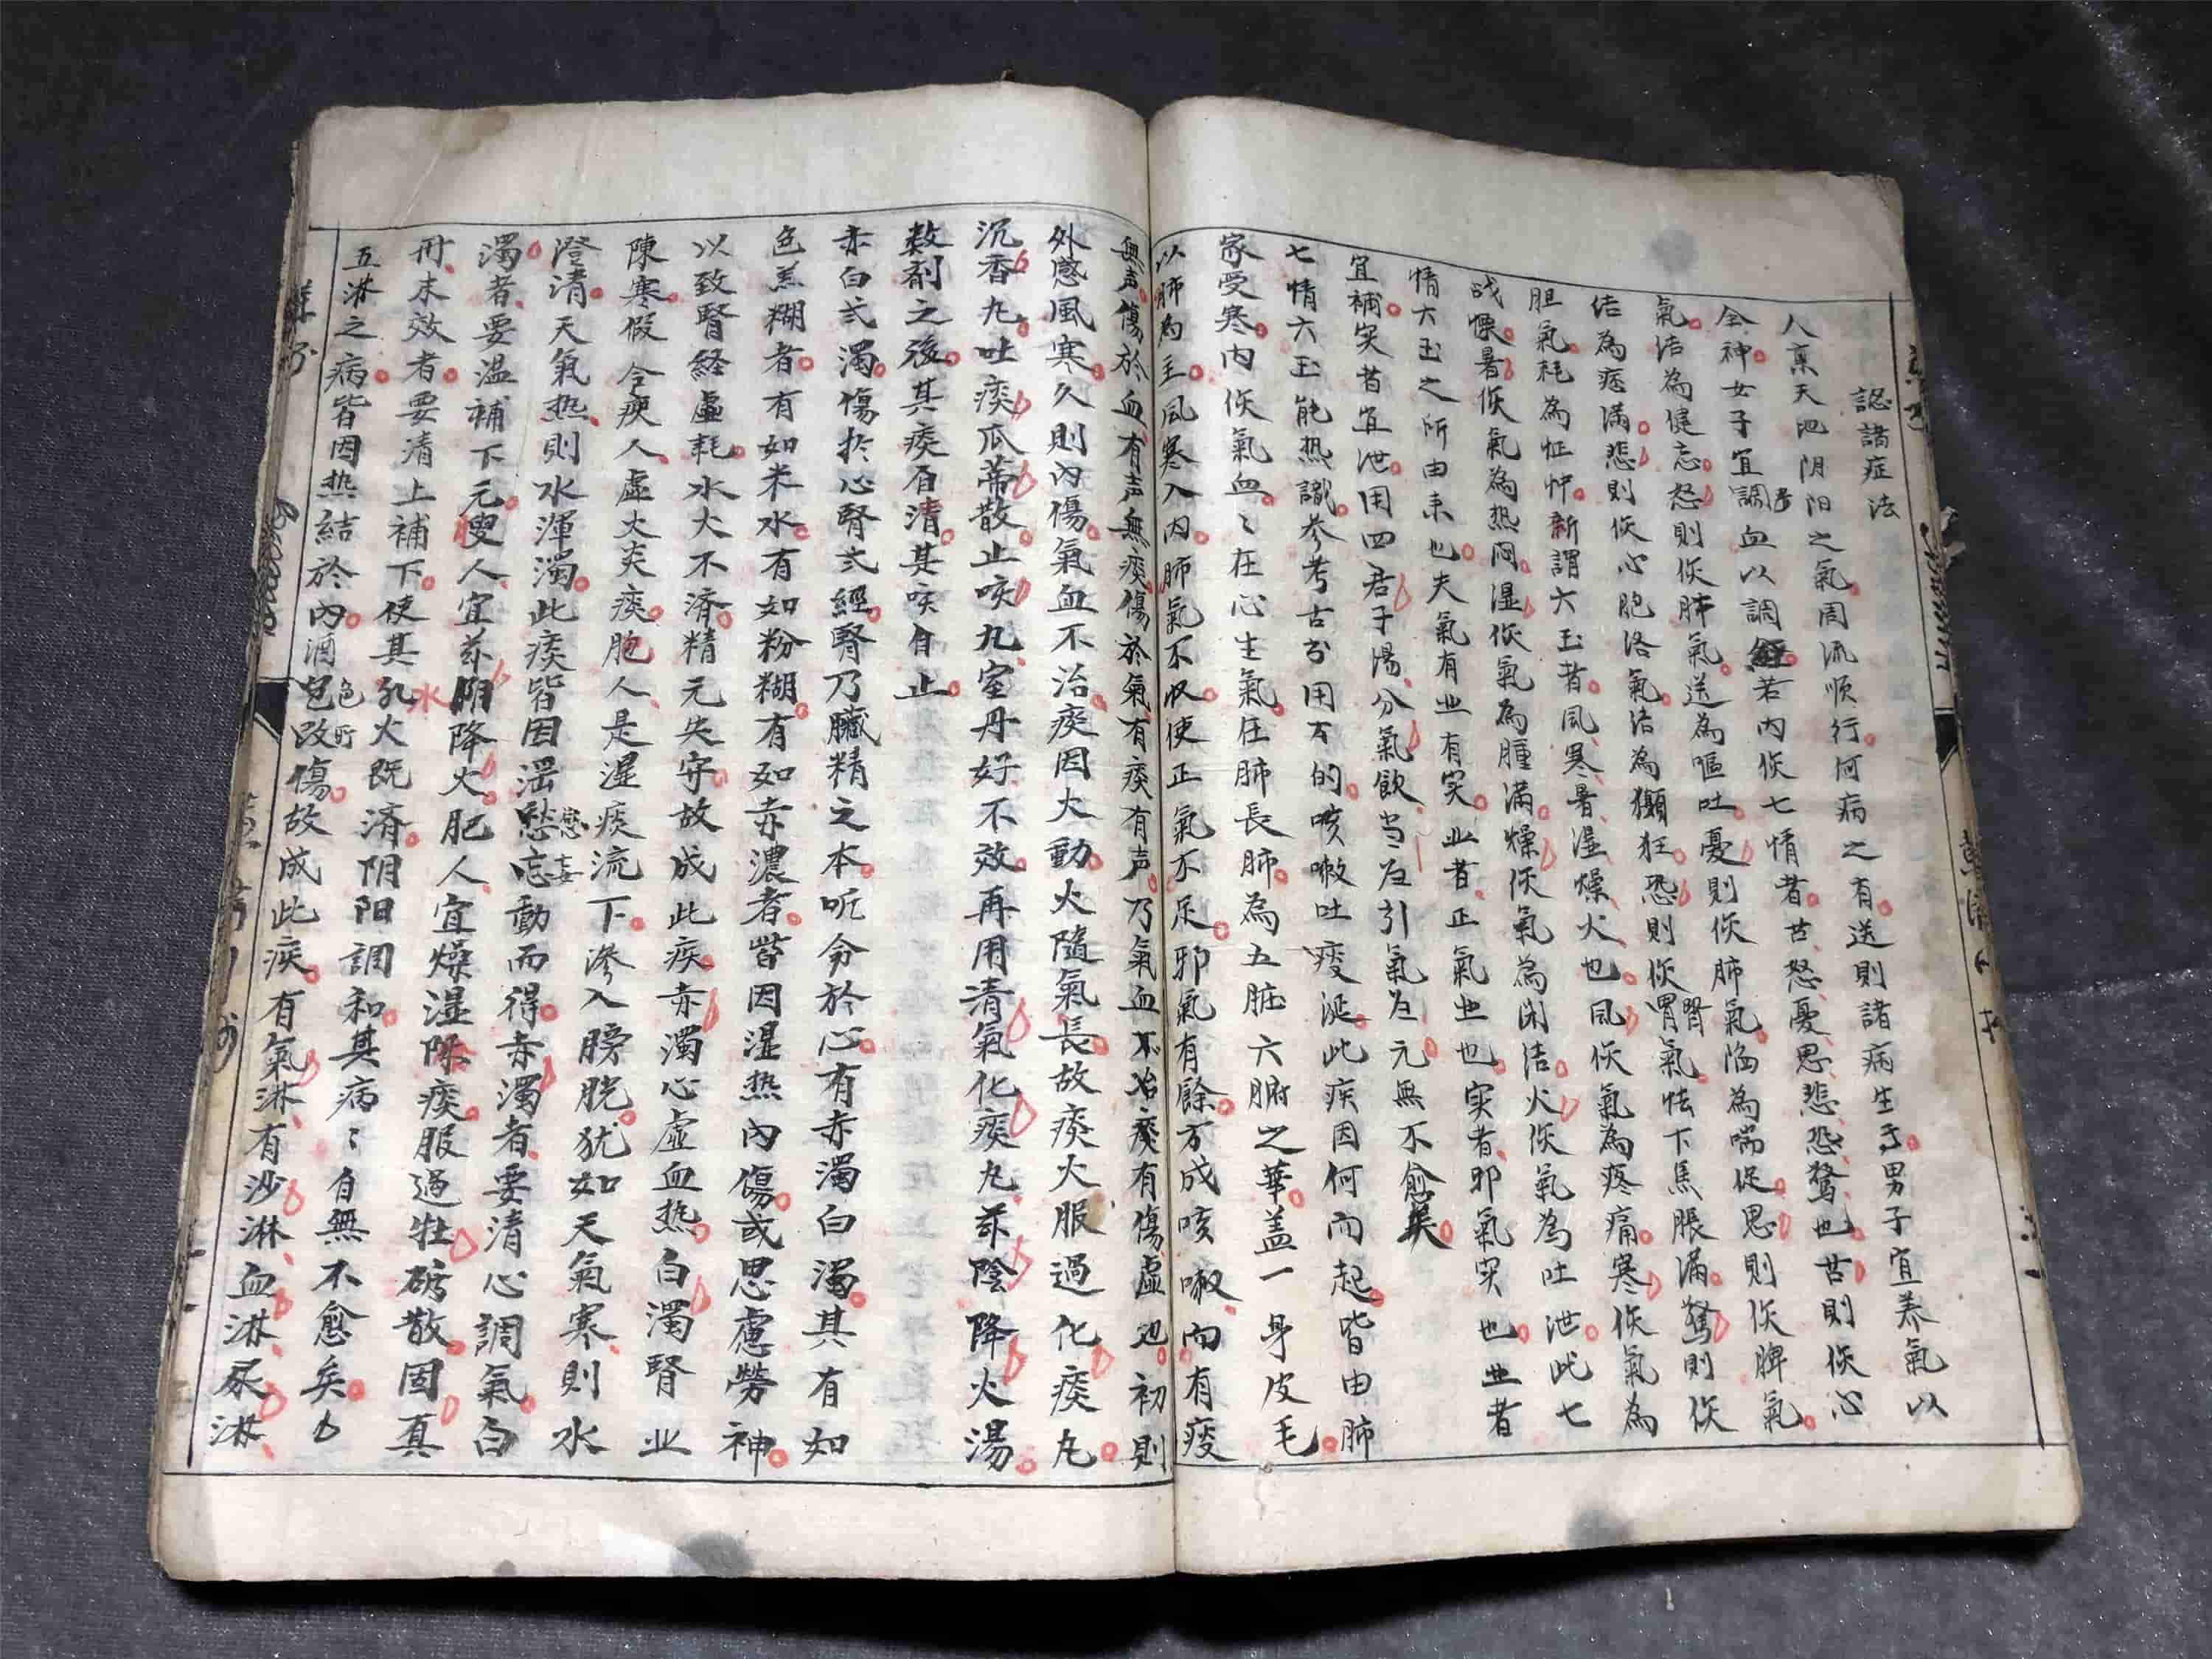 認諸症法
人禀天地阴阳之氣周流顺行何病之有逆則諸病生于男子宜养氣以
全神女子宜調血以調經若内伤七情者苦怒憂思悲恐驚也苦則伤心
氣结為健忘怒則伤肺氣送為嘔吐憂則伤肺氣滔為喘促思則伤脾氣
结為痞满悲則伤心胞洛氣结為獺狂恐則伤腎氣怯下馬脹滿驚則伤
胆氣耗為怔忡新謂六玉者風寒暑湿燥火也風伤氣為疼痛寒伤氣為
战慄暑伤氣為热闷湿伤氣為腫满燥伤氣為闭结火伤氣為吐泄此七
情六玉之所由来也夫氣有业有实业者正氣业也实者邪氣实也业者
宜補实者宜泄用四君子湯分氣飲当为引氣为元無不愈矣
七情六玉能热識参考古方用百的咳嗽吐痰涎此疾因何而起皆由肺
家受寒内伤氣血〻在心生氣在肺長肺為五脏六腑之華盖一身皮毛
以肺為主風寒入内肺氣不收使正氣不足邪氣有餘方成咳嗽向有痰
無声傷於血有声無痰傷於氣有痰有声乃氣血不治痰有傷虚也初則
外感風寒久則内傷氣血不治痰因火動火隨氣長故痰火服過化痰丸
沉香丸吐痰瓜蒂散止咳九室丹好不效再用清氣化痰丸茲陰降火湯
数剂之後其痰自清其咳自止
赤白弍濁傷於心腎弍經腎乃臟精之本听命於心有赤濁白濁其有如
色羔糊者有如米水有如粉糊有如赤濃者皆因湿热内傷或思慮勞神
以致腎経虚耗水火不濟精元失守故成此疾赤濁心虚血热白濁腎业
陳寒假令瘐人虚火炎痰胞人是湿痰流下渗入膀胱犹如天氣寒則水
澄清天氣热則水渾濁此痰皆因滛慾忘動而得赤濁者要清心調氣白
濁者要温補下元叟人宜茲阴降火肥人宜燥湿除痰服過牡礪散固真
丹未效者要清上補下使其水火既濟阴阳調和其病〻自無不愈矣
五淋之病皆因热結於内酒色所傷故成此疾有氣淋有沙淋血淋尿淋